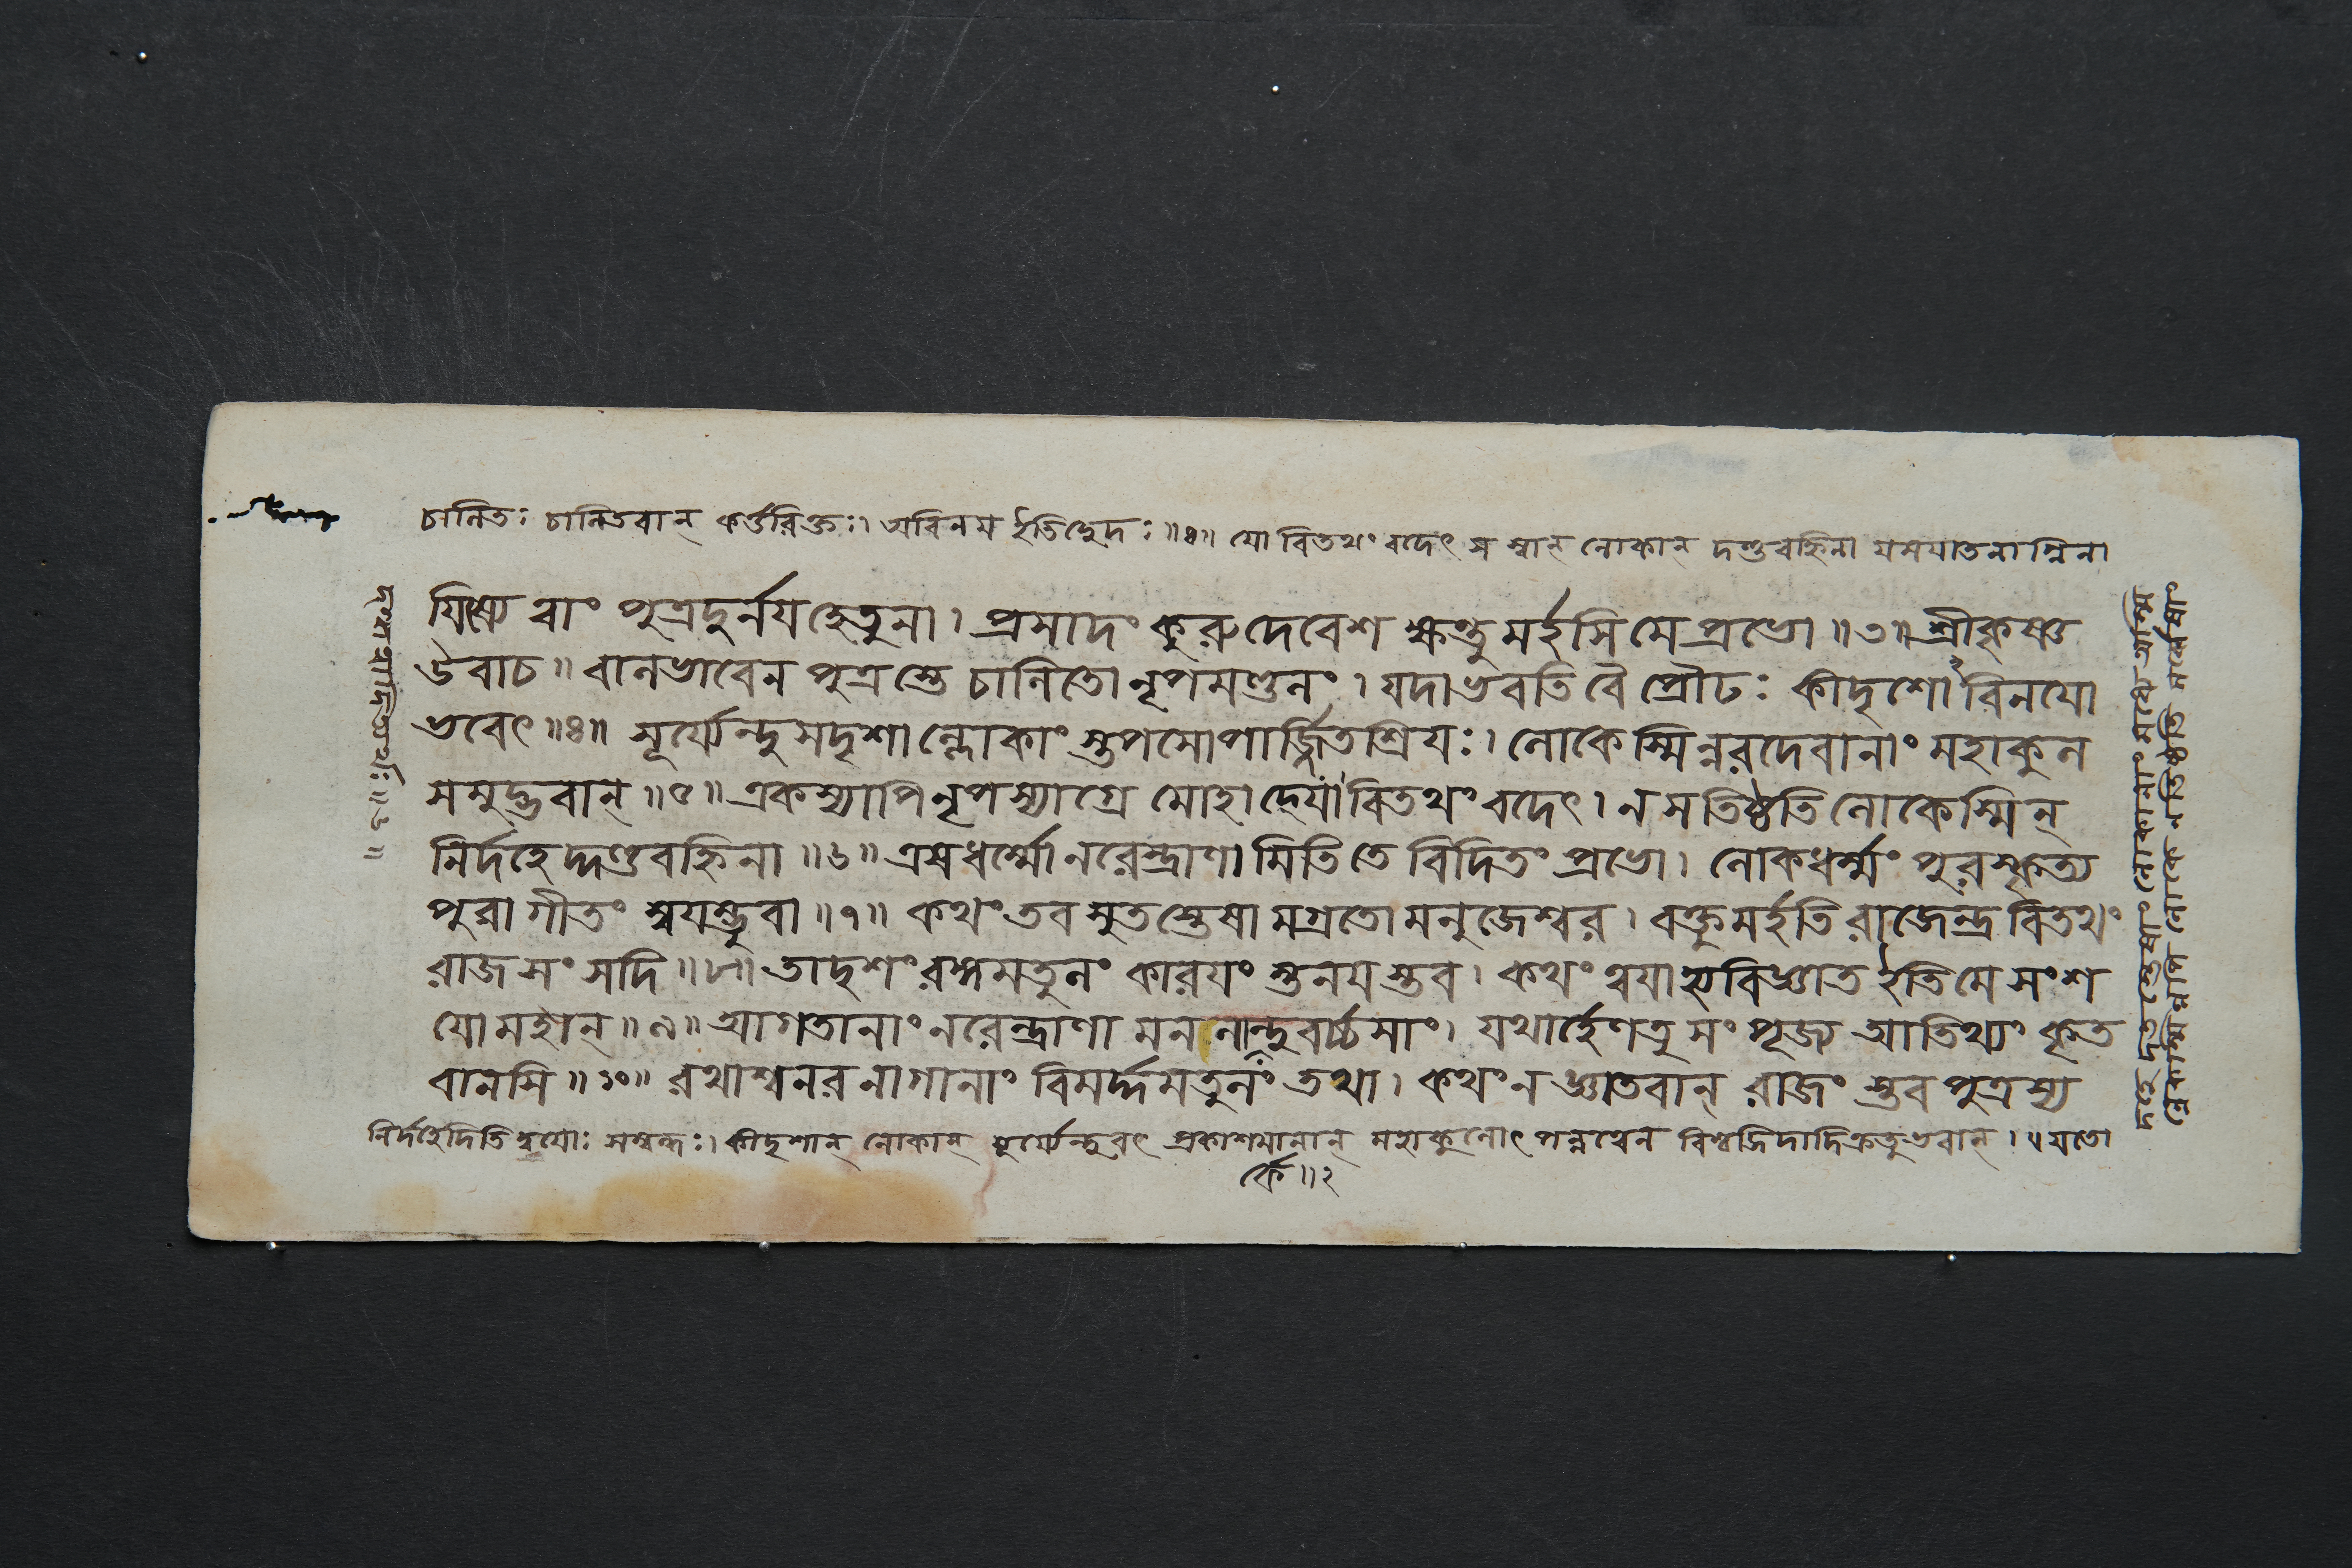 চালিতঃ চালিতবান্ কর্ত্তরিক্তঃ। অবিনয ইতিচ্ছেদঃ ॥৪॥ যো বিতথং বদেৎ স স্বান্ লোকান্ দণ্ডবহ্নিনা যমযাতনাগ্নিনা
যিষ্যে ত্বাং পুত্রদুর্নযহেতুনা। প্রসাদং কুরুদেবেশ ক্ষন্তুমর্হসি মে প্রভো ॥৩॥ শ্রীকৃষ্ণ
উবাচ॥ বালভাবেন পুত্রস্তে চালিতো নৃপমণ্ডলং। যদা ভবতি বৈ প্রৌঢঃ কীদৃশোঽবিনযো
ভবেৎ ॥৪॥ সূর্য্যেন্দুসদৃশাল্লোকাংস্তপসোপার্জ্জিতশ্রিযঃ। লোকেস্মিন্নরদেবানাং মহাকুল
সমুদ্ভবান্ ॥৫॥ একস্যাপি নৃপস্যাগ্রে মোহাদ্যো বিতথং বদেৎ। ন স তিষ্ঠতি লোকেস্মিন্
নির্দহেদ্দণ্ডবহ্নিনা ॥৬॥ এষ ধর্ম্মো নরেন্দ্রাণামিতি তে বিদিতং প্রভো। লোকধর্ম্মং পুরস্কৃত্য
পুরা গীতং স্বযম্ভুবা ॥৭॥ কথং তব সুতস্তেষামগ্রতো মনুজেশ্বর। বক্তুমর্হতি রাজেন্দ্র বিতথং
রাজসংসদি ॥৮॥ তাদৃশং রঙ্গমতুলং কারযংস্তনযস্তব। কথং ত্বযা হ্যবিজ্ঞাত ইতি মে সংশ
যো মহান্ ॥৯॥ আগতানাং নরেন্দ্রাণামনলার্কেন্দুবর্চসাং। যথার্হেণ তু সংপূজ্য আতিথ্যং কৃত
বানসি ॥১০॥ রথাশ্বনরনাগানাং বিমর্দ্দমতুলং তথা। কথং ন জ্ঞাতবান্ রাজংস্তব পুত্রস্য
নির্দহেদিতি দ্বযোঃ সম্বন্ধঃ। কীদৃশান্ লোকান্ সূর্য্যেন্দুবৎ প্রকাশমানান্ মহাকুলোৎপন্নত্বেন বিশ্বজিদাদিক্রতুভবান্। ৫ যতো
র্কে ॥২